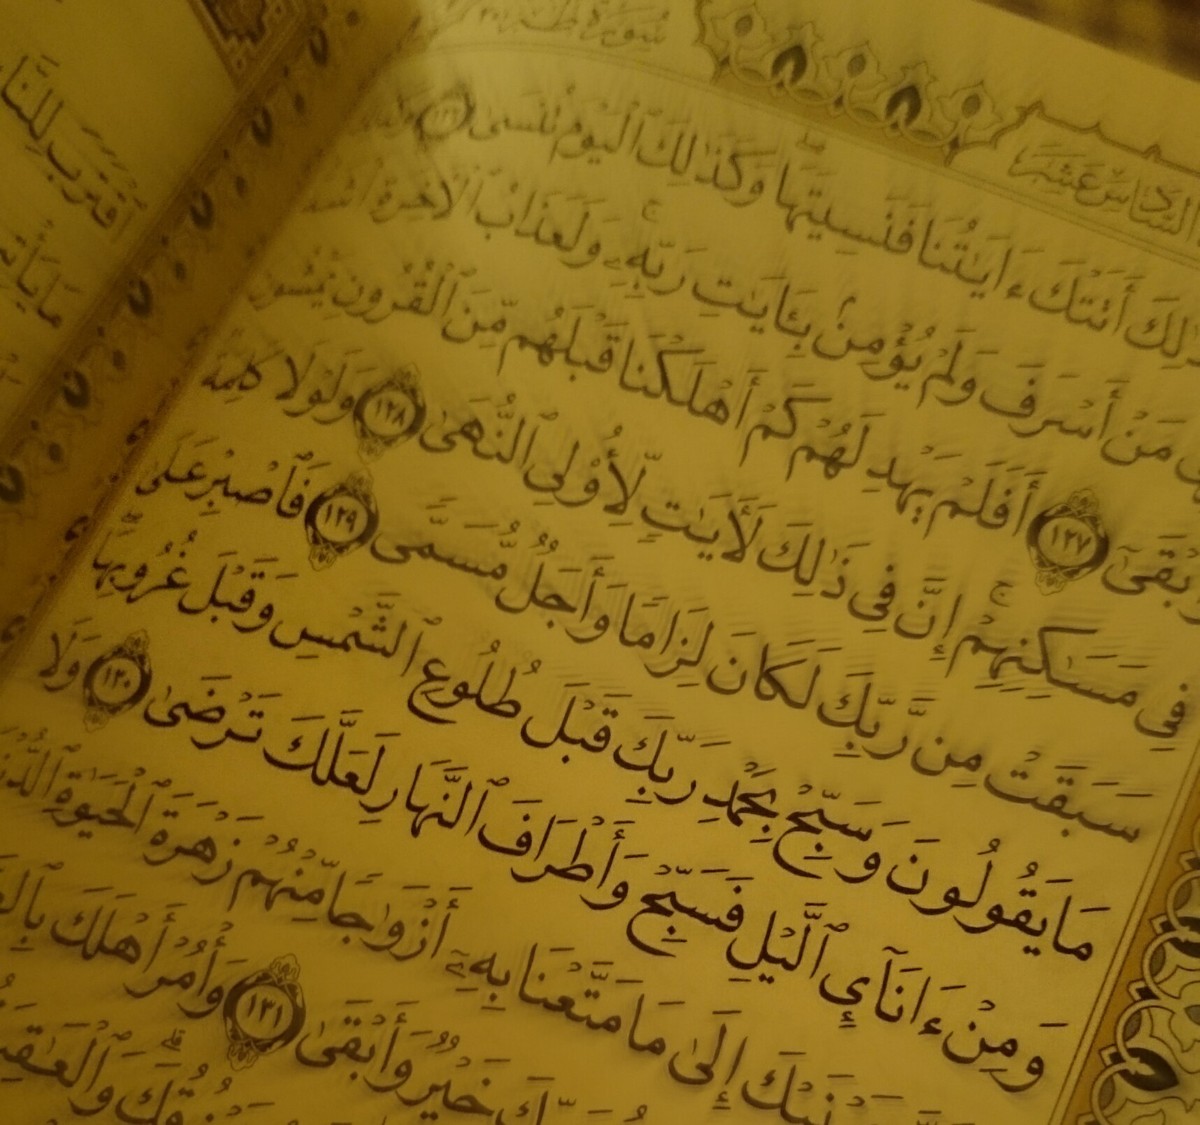 سُورَةُ طه
السَّادِسَ عَشَرَ
أَتَتْكَ ءَايَٰتُنَا فَنَسِيتَهَا ۖ وَكَذَٰلِكَ ٱلْيَوْمَ تُنسَىٰ ١٢٦
مَنْ أَسْرَفَ وَلَمْ يُؤْمِنۢ بِـَٔايَٰتِ رَبِّهِۦ ۚ وَلَعَذَابُ ٱلْأَخِرَةِ
أَبْقَىٰٓ ١٢٧ أَفَلَمْ يَهْدِ لَهُمْ كَمْ أَهْلَكْنَا قَبْلَهُم مِّنَ ٱلْقُرُونِ يَمْشُونَ
فِي مَسَٰكِنِهِمْ ۚ إِنَّ فِي ذَٰلِكَ لَأَيَٰتٍ لِّأُو۟لِي ٱلنُّهَىٰ ١٢٨ وَلَوْلَا كَلِمَةٌ
سَبَقَتْ مِن رَّبِّكَ لَكَانَ لِزَامًا وَأَجَلٌ مُّسَمًّى ١٢٩ فَٱصْبِرْ عَلَىٰ
مَا يَقُولُونَ وَسَبِّحْ بِحَمْدِ رَبِّكَ قَبْلَ طُلُوعِ ٱلشَّمْسِ وَقَبْلَ غُرُوبِهَا ۖ
وَمِنْ ءَانَآئِ ٱلَّيْلِ فَسَبِّحْ وَأَطْرَافَ ٱلنَّهَارِ لَعَلَّكَ تَرْضَىٰ ١٣٠ وَلَا
إِلَىٰ مَا مَتَّعْنَا بِهِۦٓ أَزْوَٰجًا مِّنْهُمْ زَهْرَةَ ٱلْحَيَوٰةِ
خَيْرٌ وَأَبْقَىٰ ١٣١ وَأْمُرْ أَهْلَكَ
ٱقْتَرَبَ لِلنَّاسِ